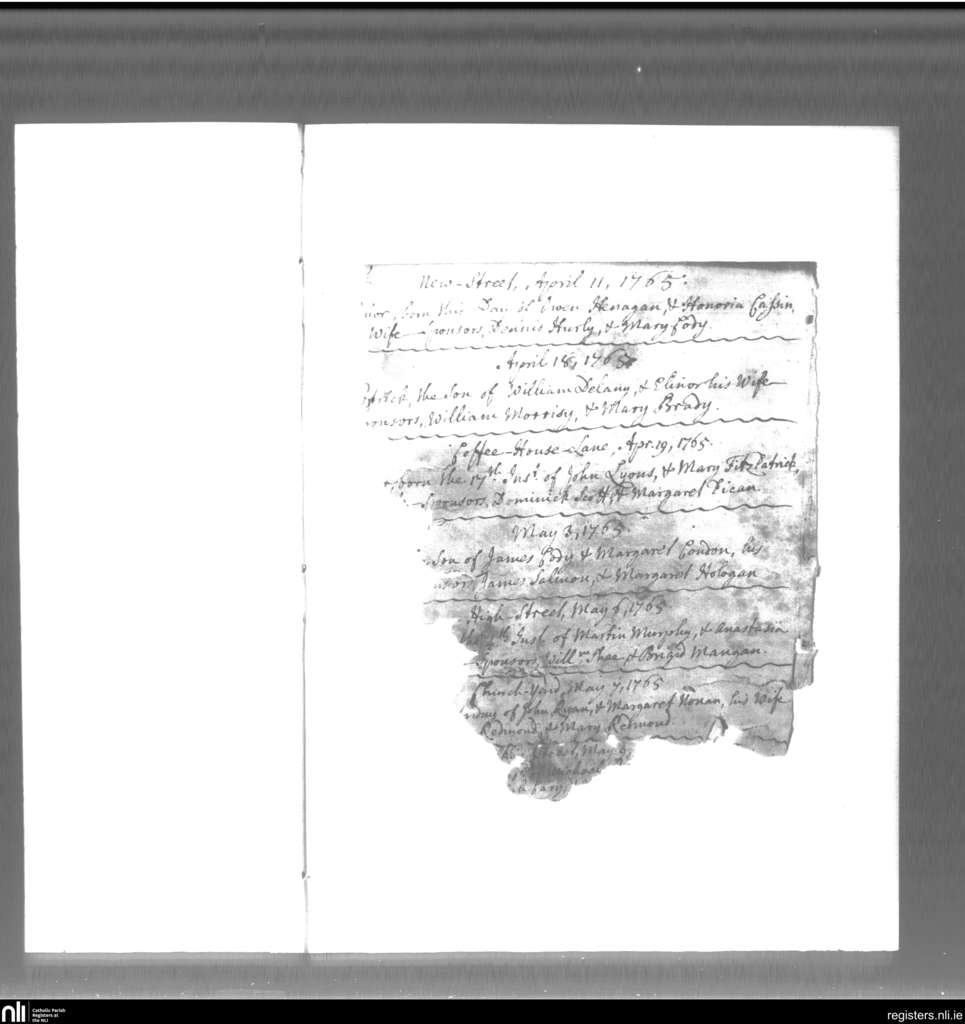 New-Street, April 11, 1765.
born this Day of Owen Henagan, & Honoria Cassin,
Wife Sponsors, Dennis Hurly, & Mary Cody.
April 18, 1765
the Son of William Delany, & Elinor his Wife
William Morrisy, & Mary Brady.
Coffee-House-Lane, Apr. 19, 1765.
born the 17th Inst. of John Lyons, & Mary FitzPatrick,
Sponsors, Dominick Scott, & Margaret
May 3, 1765
Son of James Cody & Margaret Condon, his
James Salmon, & Margaret Hologan
High-Street, May 6, 1765
Inst. of Martin Murphy, & Anastasia
Sponsors, Willm. Shee & Brigid Mangan.
Church-Yard, May 7, 1765
of John Ryan, & Margaret Nonan, his Wife
Redmond, & Mary Redmond.
May 9,
nli
Catholic Parish
Registers at
the NLI
registers.nli.ie